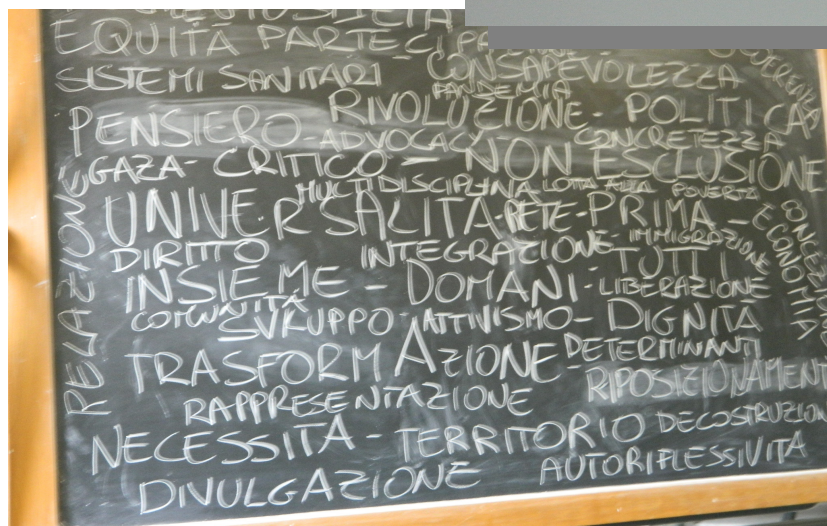 EQUITÀ PARTECIPA
SISTEMI SANITARI CONSAPEVOLEZZA
PANDEMIA
RIVOLUZIONE - POLITICA
PENSIERO - ADVOCACY CONCRETEZZA
GAZA - CRITICO - NON ESCLUSIONE
MULTIDISCIPLINA LOTTA ALLA POVERTÀ
UNIVERSALITÀ - RETE - PRIMA -
DIRITTO INTEGRAZIONE - IMMIGRAZIONE
TUTTI
INSIEME - DOMANI - LIBERAZIONE
COMUNITÀ
SVILUPPO - ATTIVISMO - DIGNITÀ
TRASFORMAZIONE - DETERMINANTI
RIPOSIZIONAMENT
RAPPRESENTAZIONE
NECESSITÀ - TERRITORIO DECOSTRUZION
DIVULGAZIONE AUTORIFLESSIVITÀ
RELAZIONE
ECONOMIA